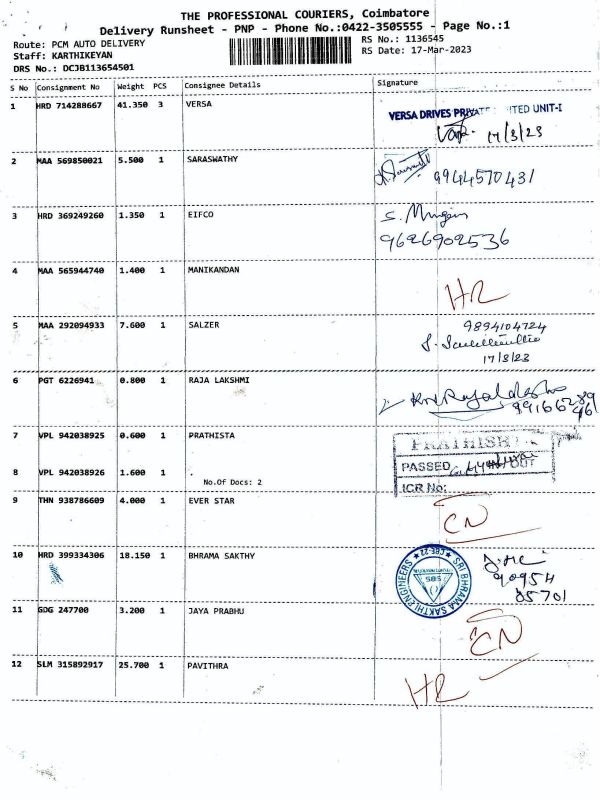 THE PROFESSIONAL COURIERS, Coimbatore
Delivery Runsheet - PNP - Phone No.:0422-3505555 - Page No.:1
Route: PCM AUTO DELIVERY
Staff: KARTHIKEYAN
DRS No.: DCJB113654501
RS No.: 1136545
RS Date: 17-Mar-2023
S No Consignment No Weight PCS Consignee Details Signature
1 HRD 714288667 41.350 3 VERSA
VERSA DRIVES PRIVATE ITED UNIT-I
17/3/23
2 MAA 569850021 5.500 1 SARASWATHY
9944570431
3 HRD 369249260 1.350 1 EIFCO
9626902536
4 MAA 565944740 1.400 1 MANIKANDAN
HR
5 MAA 292094933 7.600 1 SALZER
9894104724
17/3/23
6 PGT 6226941 0.800 1 RAJA LAKSHMI
7 VPL 942038925 0.600 1 PRATHISTA
PRATHISH
8 VPL 942038926 1.600 1
No.Of Docs: 2
PASSED OUT
ICR No:
9 THN 938786609 4.000 1 EVER STAR
CN
10 HRD 399334306 18.150 1 BHRAMA SAKTHY
SRI BHRAMA SAKTHI ENGINEERS
CBE-22
SBS
90954
05701
11 GDG 247700 3.200 1 JAYA PRABHU
CN
12 SLM 315892917 25.700 1 PAVITHRA
HR